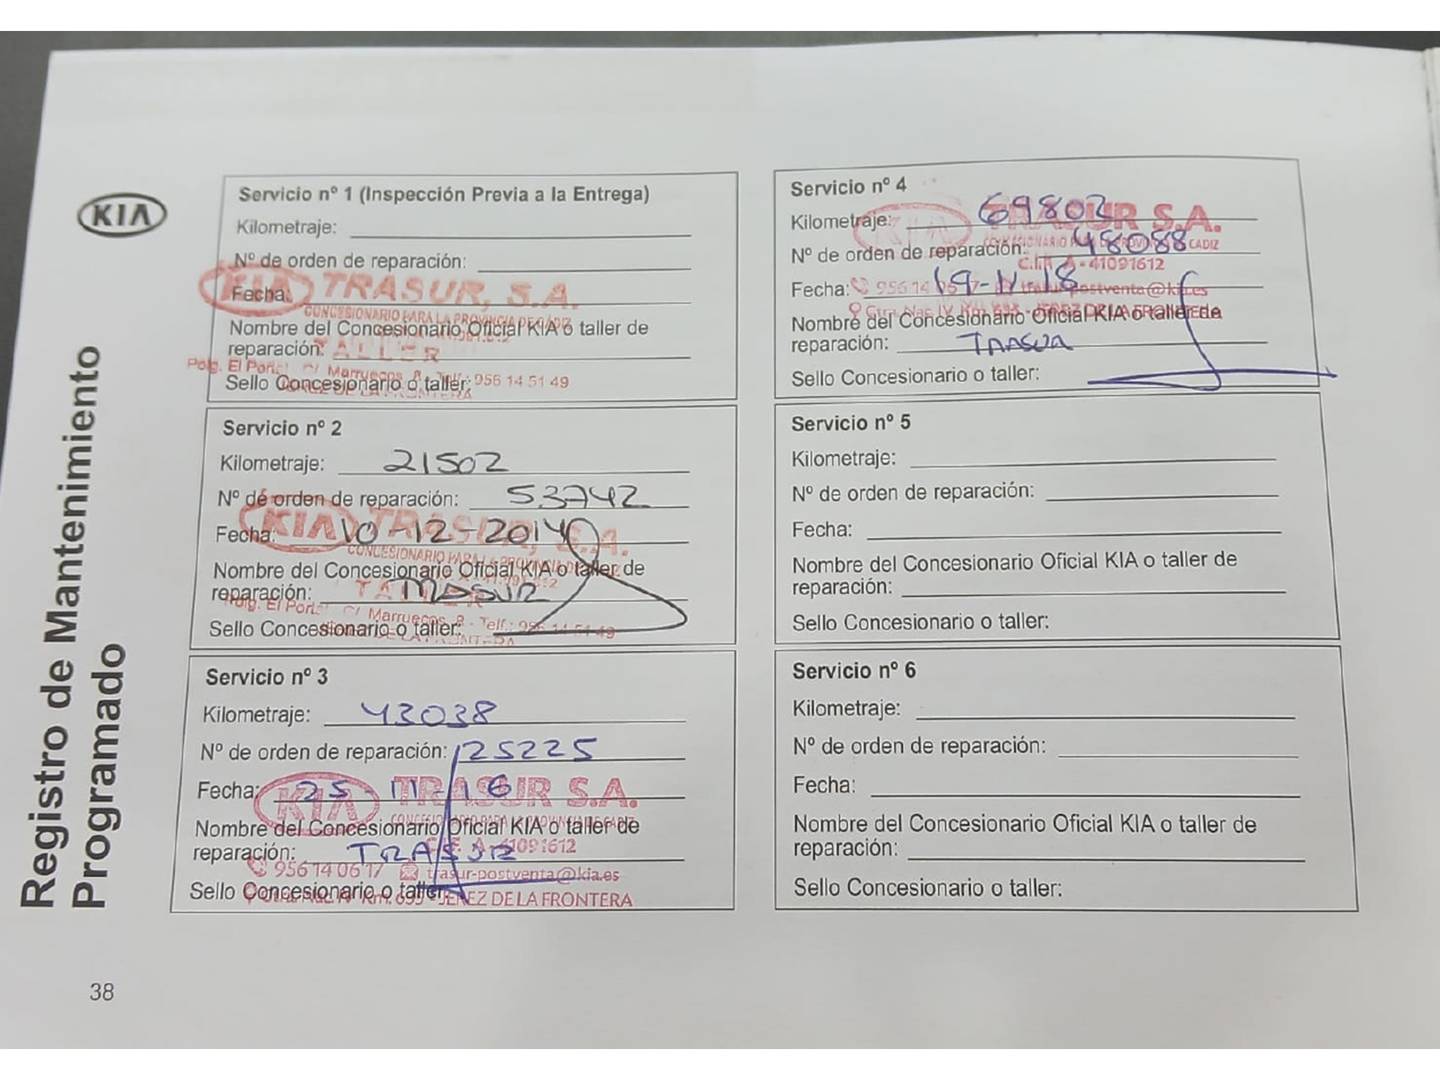 KIA
Registro de Mantenimiento
Programado
Servicio nº 1 (Inspección Previa a la Entrega)
Kilometraje:
Nº de orden de reparación:
KIA TRASUR, S.A.
Fecha:
CONCESIONARIO PARA LA PROVINCIA DE CÁDIZ
Nombre del Concesionario Oficial KIA o taller de
reparación:
TALLER
Polg. El Portal C/ Marruecos, 8 - Telf.: 956 14 51 49
Sello Concesionario o taller:
JEREZ DE LA FRONTERA
Servicio nº 2
Kilometraje: 21502
Nº de orden de reparación: 53742
KIA TRASUR, S.A.
Fecha: 10-12-2014
CONCESIONARIO PARA LA
Nombre del Concesionario Oficial KIA o taller de
reparación: TRASUR
TALLER
Polg. El Portal C/ Marruecos, 8 - Telf.: 956 14 51 49
Sello Concesionario o taller:
DE LA FRONTERA
Servicio nº 3
Kilometraje: 43038
Nº de orden de reparación: 125225
KIA TRASUR S.A.
Fecha: 25-11-16
CONCESIONARIO PARA LA PROVINCIA DE CADIZ
Nombre del Concesionario Oficial KIA o taller de
C.I.F. A-41091612
reparación: TRASUR
956 14 06 17 trasur-postventa@kia.es
Sello Concesionario o taller:
Ctra. Nac. IV Km. 635 - JEREZ DE LA FRONTERA
Servicio nº 4
Kilometraje: 69802
KIA TRASUR S.A.
Nº de orden de reparación: 48088
CONCESIONARIO PARA LA PROVINCIA CADIZ
C.I.F. A-41091612
Fecha: 19-11-18
956 14 06 17 trasur-postventa@kia.es
Ctra. Nac. IV Km. 635 - JEREZ DE LA FRONTERA
Nombre del Concesionario Oficial KIA o taller de
reparación: TRASUR
Sello Concesionario o taller:
Servicio nº 5
Kilometraje:
Nº de orden de reparación:
Fecha:
Nombre del Concesionario Oficial KIA o taller de
reparación:
Sello Concesionario o taller:
Servicio nº 6
Kilometraje:
Nº de orden de reparación:
Fecha:
Nombre del Concesionario Oficial KIA o taller de
reparación:
Sello Concesionario o taller:
38